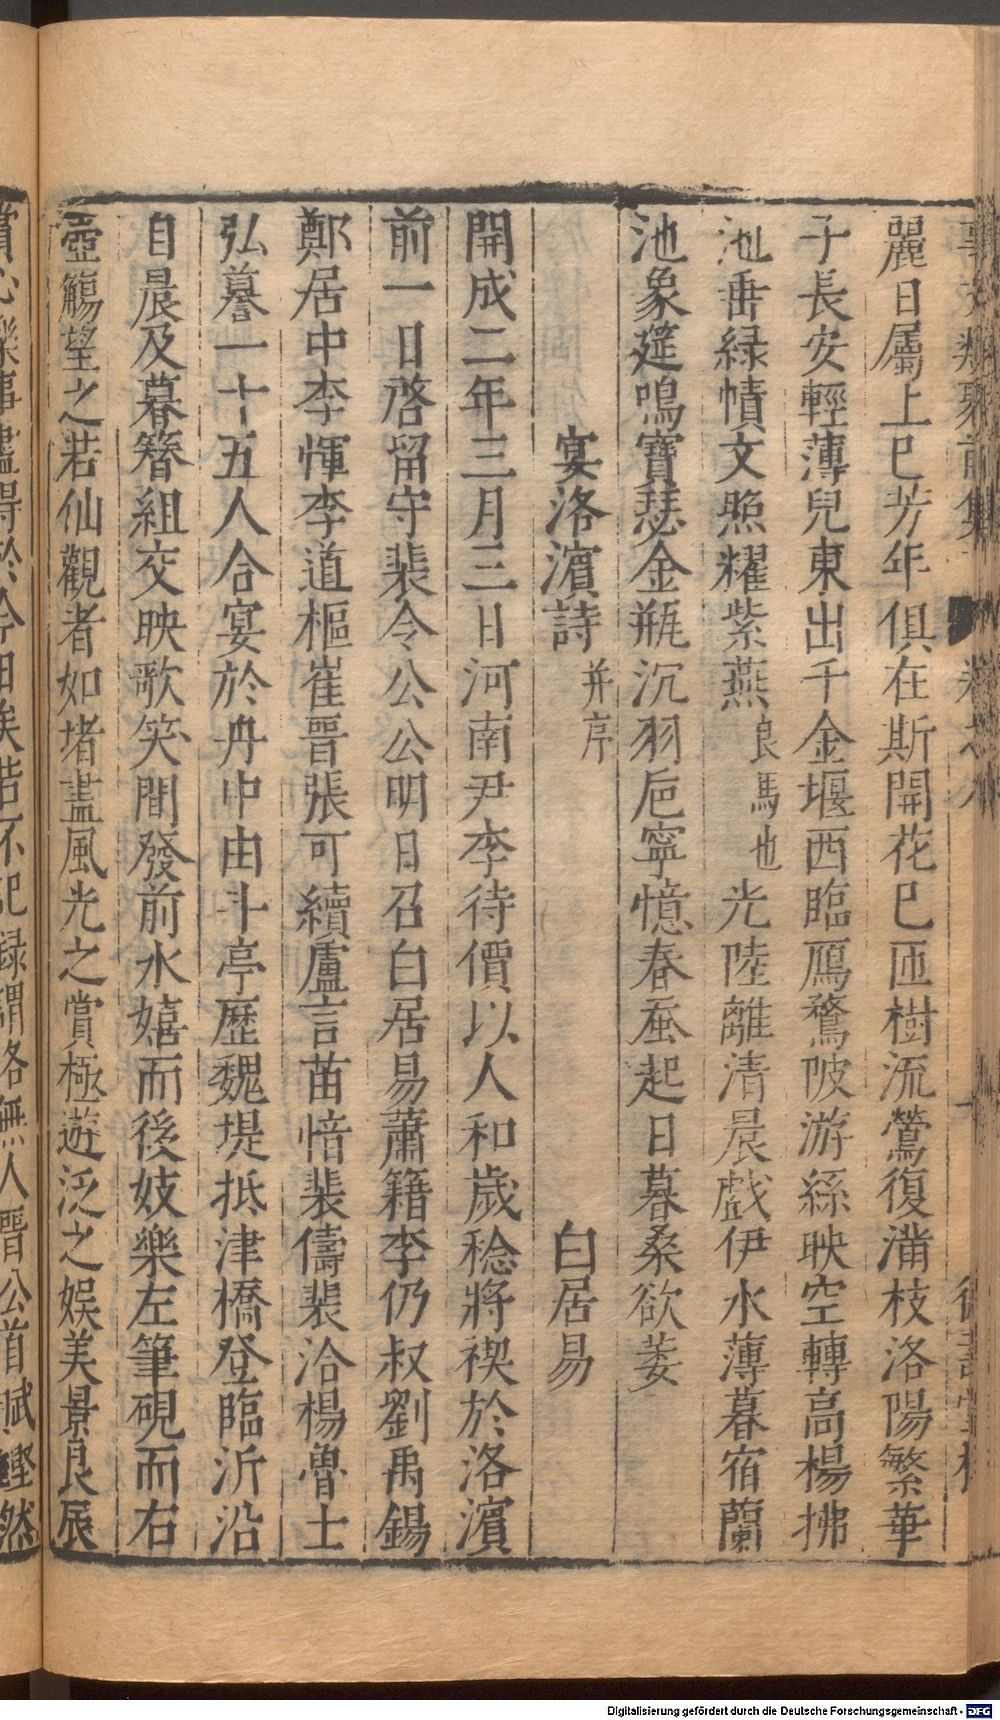 事文類聚前集
麗日屬上巳芳年俱在斯開花已匝樹流鶯復滿枝洛陽繁華
子長安輕薄兒東出千金堰西臨鴈鶩陂游絲映空轉高楊拂
池垂緑幘文照耀紫燕良馬也光陸離清晨戲伊水薄暮宿蘭
池象筵鳴寶瑟金瓶沉羽巵寧憶春蚕起日暮桑欲萎
宴洛濱詩并序 白居易
開成二年三月三日河南尹李待價以人和歲稔將禊於洛濱
前一日啓畱守裴令公公明日召白居易蕭籍李仍叔劉禹錫
鄭居中李惲李道樞崔晋張可續盧言苗愔裴儔裴洽楊魯士
弘䕫一十五人合宴於舟中由斗亭歷魏堤抵津橋登臨沂沿
自晨及暮簪組交映歌笑間發前水嬉而後妓樂左筆硯而右
壺觴望之若仙觀者如堵盡風光之賞極遊泛之娛美景良辰
賞心樂事盡得於今日矣若不記録謂洛無人晋公首賦鏗然
Digitalisierung gefördert durch die Deutsche Forschungsgemeinschaft - DFG